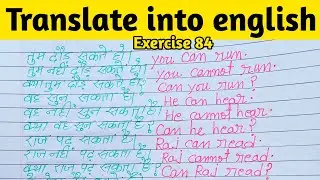 Translate into english
Exercise 84
तुम दौड़ सकते हो। you can run.
तुम नहीं दौड़ सकते हो। you cannot run.
क्या तुम दौड़ सकते हो? Can you run?
वह सुन सकता है। He can hear.
वह नहीं सुन सकता है। He cannot hear.
क्या वह सुन सकता है? Can he hear?
राज पढ़ सकता है। Raj can read.
राज नहीं पढ़ सकता है। Raj cannot read.
क्या राज पढ़ सकता है? Can Raj read?